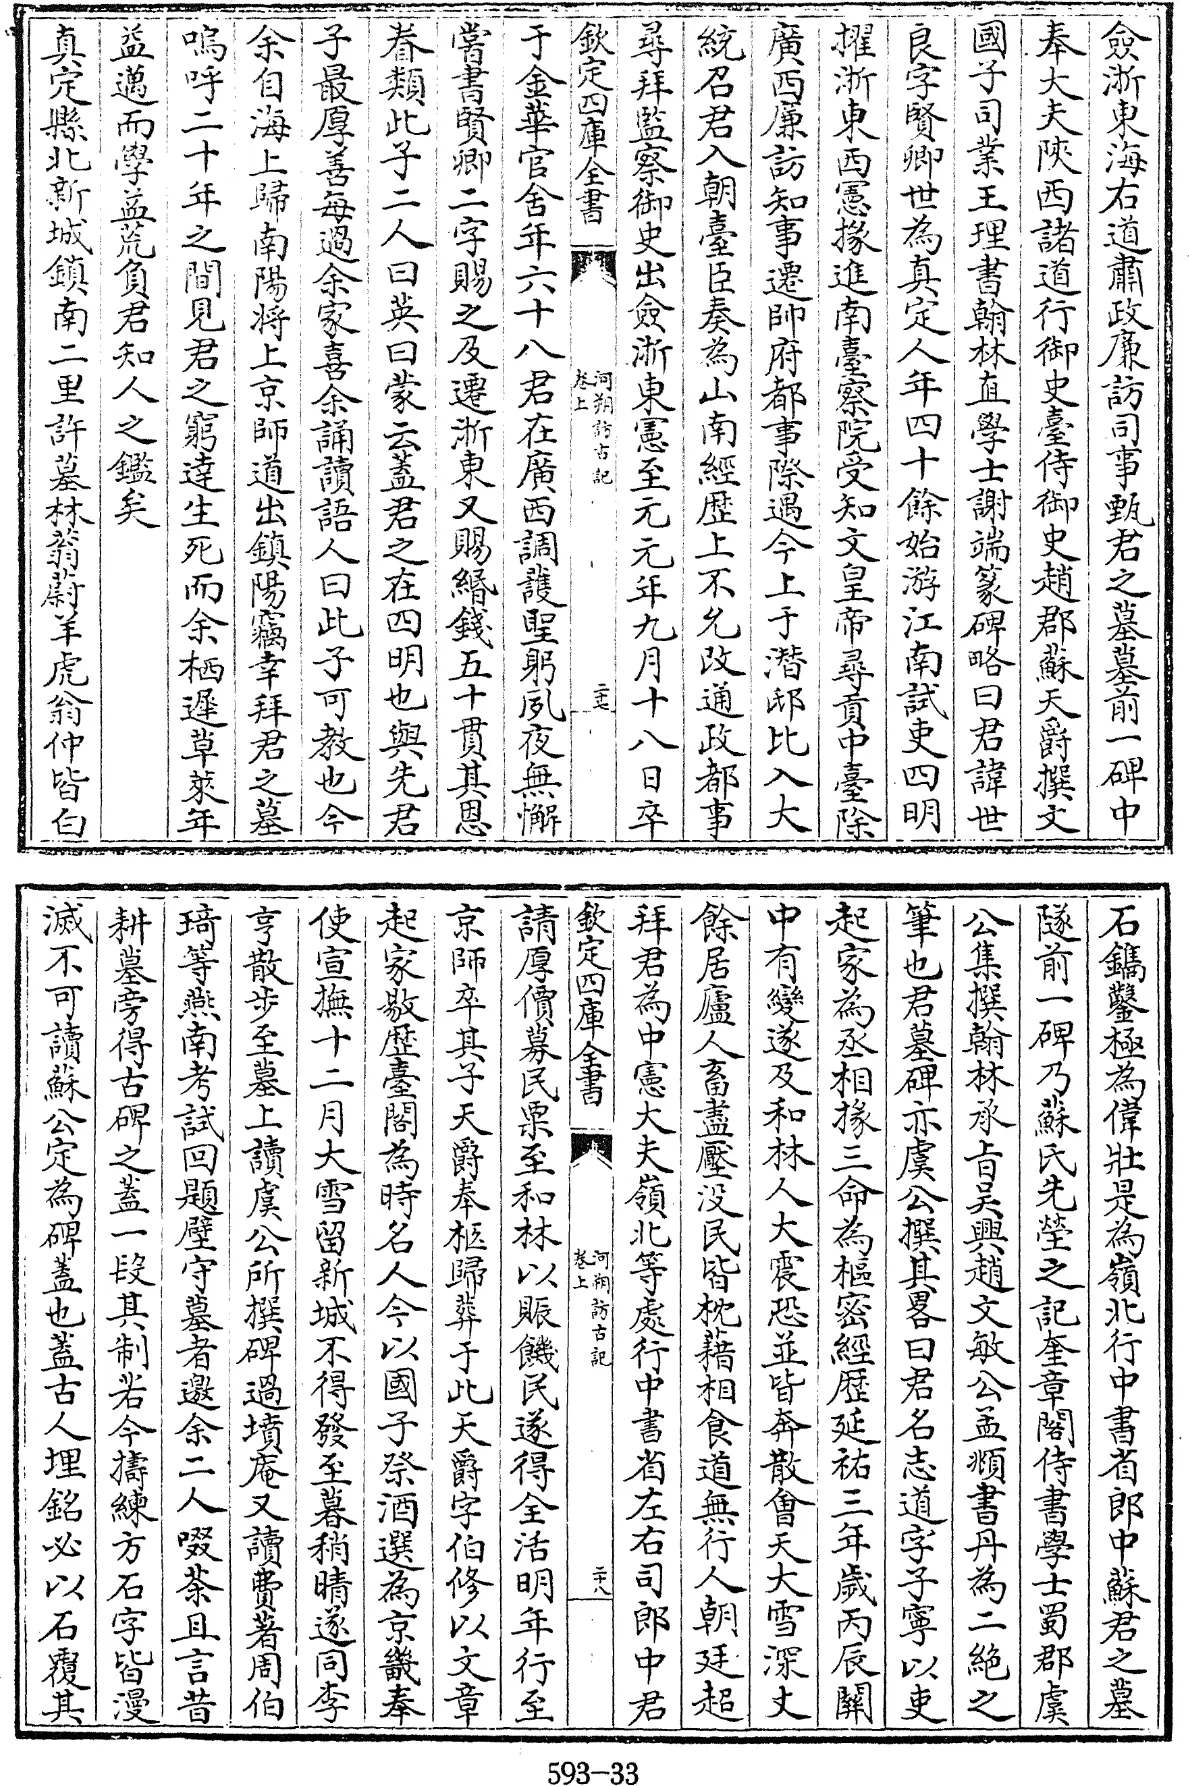 僉浙東海右道肅政廉訪司事甄君之墓墓前一碑中
奉大夫陝西諸道行御史臺侍御史趙郡蘇天爵撰文
國子司業王理書翰林直學士謝端篆碑略曰君諱世
良字賢卿世為真定人年四十餘始游江南試吏四明
擢浙東西憲掾進南臺察院受知文皇帝尋貢中臺除
廣西廉訪知事遷帥府都事際遇今上于潛邸比入大
統召君入朝臺臣奏為山南經歷上不允改通政都事
尋拜監察御史出僉浙東憲至元元年九月十八日卒
欽定四庫全書
河朔訪古記
卷上
二十七
于金華官舍年六十八君在廣西調護聖躬夙夜無懈
嘗書賢卿二字賜之及遷浙東又賜緡錢五十貫其恩
眷類此子二人曰英曰蒙云蓋君之在四明也與先君
子最厚善每過余家喜余誦讀語人曰此子可教也今
余自海上歸南陽將上京師道出鎮陽竊幸拜君之墓
嗚呼二十年之間見君之窮達生死而余栖遲草萊年
益邁而學益荒負君知人之鑑矣
真定縣北新城鎮南二里許墓林蓊蔚羊虎翁仲皆白
石鐫鑿極為偉壯是為嶺北行中書省郎中蘇君之墓
隧前一碑乃蘇氏先塋之記奎章閣侍書學士蜀郡虞
公集撰翰林承旨吴興趙文敏公孟頫書丹為二絶之
筆也君墓碑亦虞公撰其畧曰君名志道字子寧以吏
起家為丞相掾三命為樞密經歷延祐三年歲丙辰關
中有變遂及和林人大震恐並皆奔散會天大雪深丈
餘居廬人畜盡壓没民皆枕藉相食道無行人朝廷超
拜君為中憲大夫嶺北等處行中書省左右司郎中君
欽定四庫全書
河朔訪古記
卷上
二十八
請厚價募民粟至和林以賑饑民遂得全活明年行至
京師卒其子天爵奉柩歸葬于此天爵字伯修以文章
起家敭歷臺閣為時名人今以國子祭酒選為京畿奉
使宣撫十二月大雪留新城不得發至暮稍晴遂同李
亨散步至墓上讀虞公所撰碑過墳庵又讀費著周伯
琦等燕南考試回題壁守墓者邀余二人啜茶且言昔
耕墓旁得古碑之蓋一段其制若今擣練方石字皆漫
滅不可讀蘇公定為碑蓋也蓋古人埋銘必以石覆其
593-33